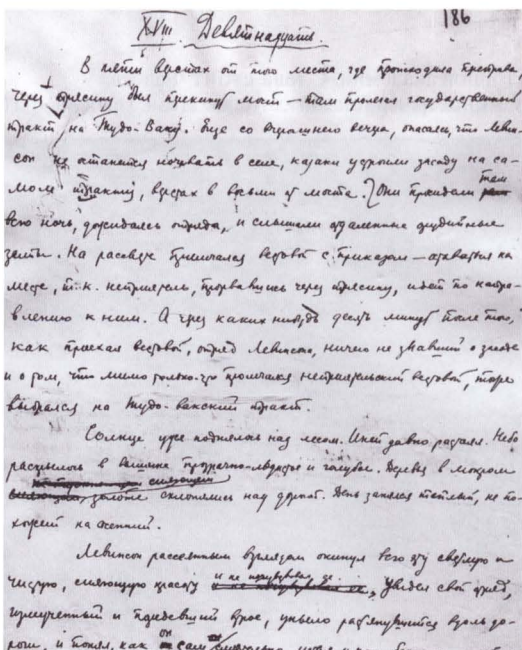 186
XVII. Девятнадцать.
В пяти верстах от того места, где происходила переправа
через трясину был перекинут мост — там пролегал государственный
тракт на Тудо-Ваку. Еще со вчерашнего вечера, опасаясь, что Левин-
сон не останется ночевать в селе, казаки устроили засаду на са-
мом тракту, верстах в восьми от моста. Они просидели там
всю ночь, дожидаясь отряда, и слышали отдаленные орудийные
залпы. На рассвете примчался вестовой с приказом — оставаться на
месте, т.к. неприятель, прорвавшись через трясину, идет по напра-
влению к ним. А через каких нибудь десять минут после того,
как проехал вестовой, отряд Левинсона, ничего не знавший о засаде
и о том, что мимо только-что промчался неприятельский вестовой, тоже
выбрался на Тудо-вакский тракт.
Солнце уже поднялось над лесом. Иней давно растаял. Небо
раскрылось в вышине прозрачно-льдистое и голубое. Деревья в мокром
сияющем
золоте склонялись над дорогой. День занялся теплый, не по-
хожий на осенний.
Левинсон рассеянным взглядом окинул всю эту светлую и
чистую, сияющую красоту и не почувствовал ее, Увидел свой отряд,
измученный и поредевший втрое, уныло растянувшийся вдоль до-
роги, и понял, как он сам